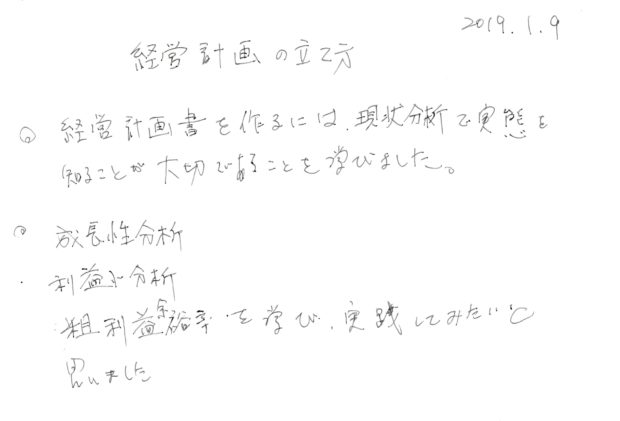 2019.1.9
経営計画の立て方
◎ 経営計画書を作るには、現状分析で実態を
知ることが大切であることを学びました。
◎ 成長性分析
・利益 分析
・粗利益余裕率を学び、実践してみたいと
思いました